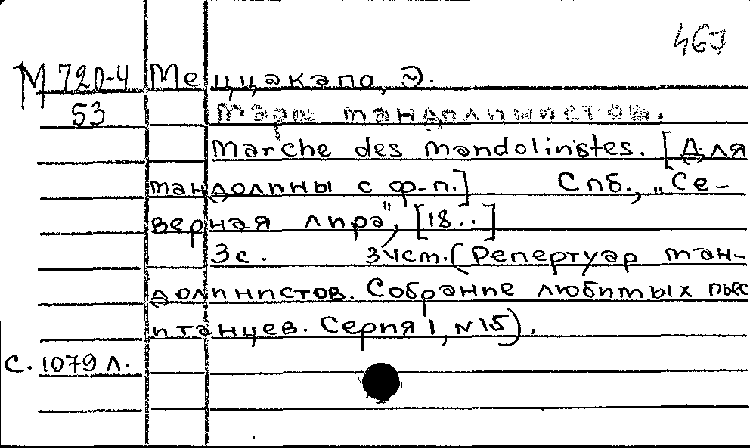 463
М 720-4 Меццакапо, Э.
53 Марш мандолинистов.
Marche des mandolinistes. [Для
мандолины с ф-п.] Спб., "Се-
верная лира", [18..]
3с. 3 ист. (Репертуар ман-
долинистов. Собрание любимых пьес
и танцев. Серия 1, N 15).
с. 1079 л.